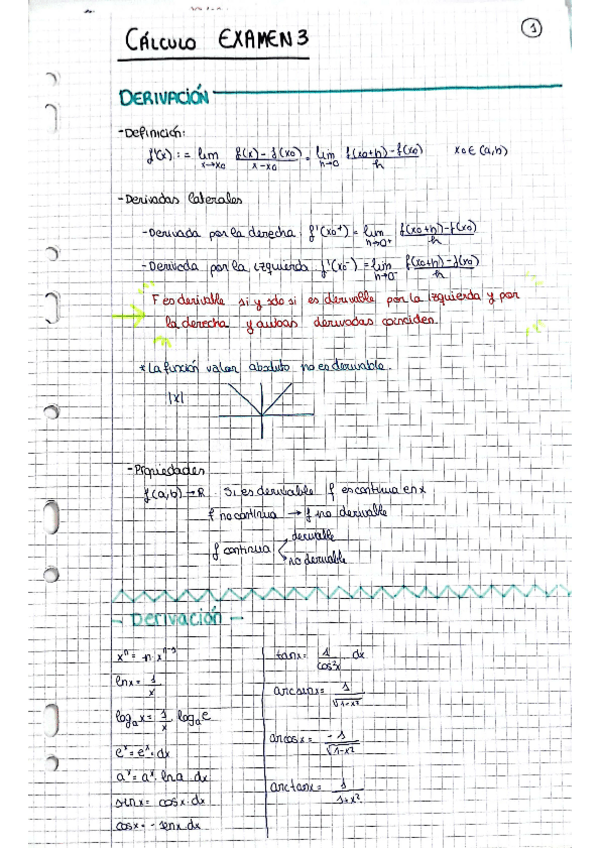 CÁLCULO EXAMEN 3
1
DERIVACIÓN
-Definición:
f'(x) := lim x→x0 f(x)-f(x0)/x-x0 = lim h→0 f(x0+h)-f(x0)/h x0 ∈ (a,b)
-Derivadas laterales
-Derivada por la derecha: f'(x0+) = lim h→0+ f(x0+h)-f(x0)/h
-Derivada por la izquierda f'(x0-) = lim h→0- f(x0+h)-f(x0)/h
F es derivable si y sdo si es derivable por la izquierda y por
la derecha y ambas derivadas coinciden.
* La función valor absoluto no es derivable.
|x|
-Propiedades
f(a,b)→R Si es derivable f es continua en x
f no continua → f no derivable
f continua
derivable
no derivable
- Derivación -
xⁿ = n xⁿ⁻¹
lnx = 1/x
logₐx = 1/x logₐe
eˣ = eˣ · dx
aˣ = aˣ · lna dx
senx = cosx · dx
cosx = - senx dx
tanx = 1/cos²x dx
arcsinx = 1/√1-x²
arcosx = -1/√1-x²
arctanx = 1/1+x²